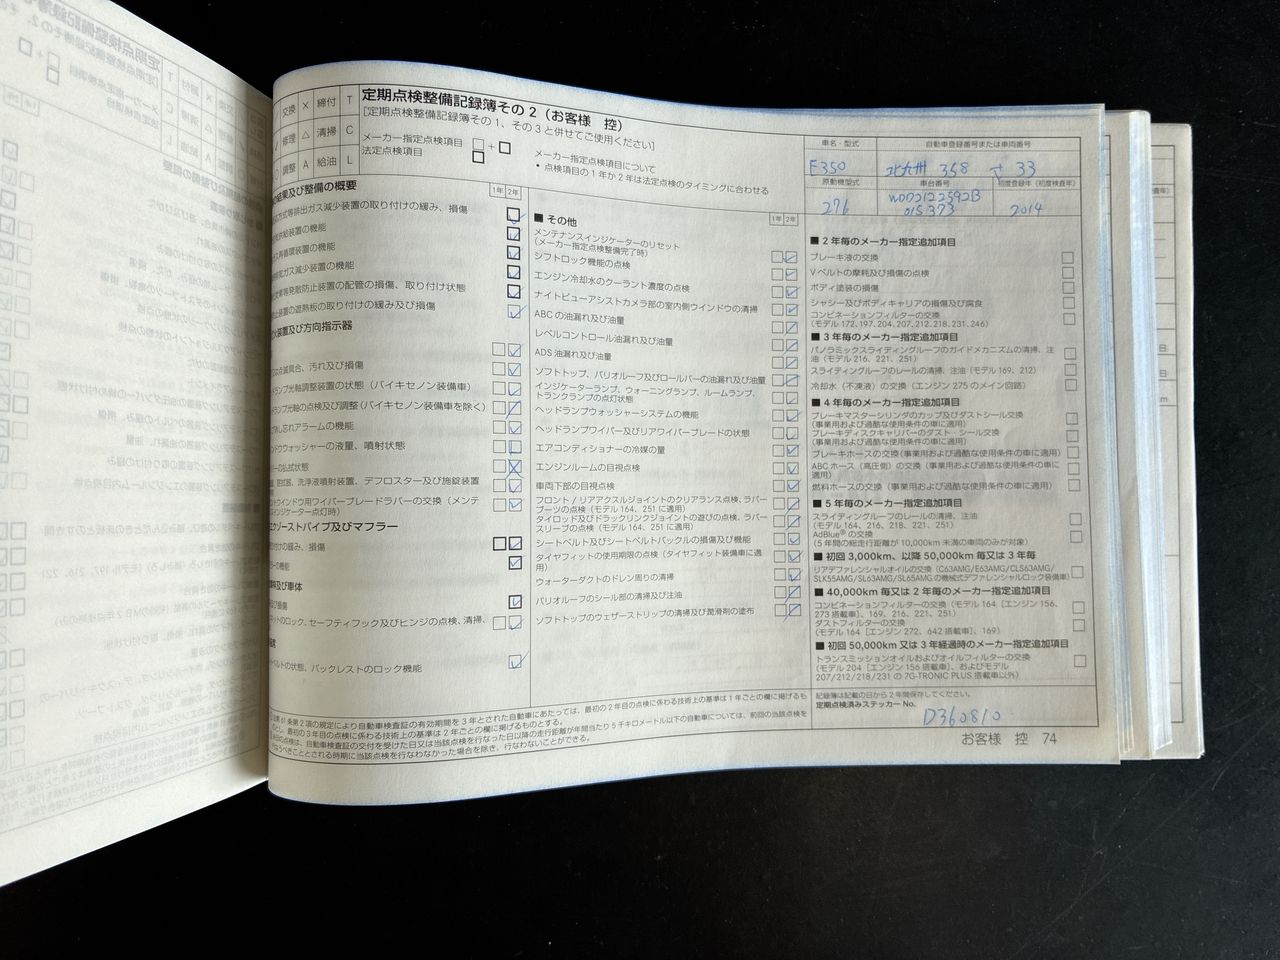 交換 × 締付 T
修理 △ 清掃 C
調整 A 給油 L
定期点検整備記録簿その2（お客様 控）
[定期点検整備記録簿その1、その3と併せてご使用ください]
メーカー指定点検項目 □+□
法定点検項目 □
メーカー指定点検項目について
• 点検項目の1年か2年は法定点検のタイミングに合わせる
車名・型式
E350
自動車登録番号または車両番号
北九州 358 す 33
原動機型式
276
車台番号
WDD2122592B
015373
初度登録年（初度検査年）
2014
結果及び整備の概要
1年 2年
方式等排出ガス減少装置の取り付けの緩み、損傷
供給装置の機能
再循環装置の機能
ガス減少装置の機能
等発散防止装置の配管の損傷、取り付け状態
装置の遮熱板の取り付けの緩み及び損傷
装置及び方向指示器
具合、汚れ及び損傷
ランプ光軸調整装置の状態（バイキセノン装備車）
ランプ光軸の点検及び調整（バイキセノン装備車を除く）
忘れアラームの機能
ウォッシャーの液量、噴射状態
払拭状態
洗浄液噴射装置、デフロスター及び施錠装置
ウインドウ用ワイパーブレードラバーの交換（メンテ
インジケーター点灯時）
エキゾーストパイプ及びマフラー
付けの緩み、損傷
の機能
及び車体
及び損傷
ネットのロック、セーフティフック及びヒンジの点検、清掃、
ベルトの状態、バックレストのロック機能
■ その他
1年 2年
メンテナンスインジケーターのリセット
（メーカー指定点検整備完了時）
シフトロック機能の点検
エンジン冷却水のクーラント濃度の点検
ナイトビューアシストカメラ部の室内側ウインドウの清掃
ABC の油漏れ及び油量
レベルコントロール油漏れ及び油量
ADS 油漏れ及び油量
ソフトトップ、バリオルーフ及びロールバーの油漏れ及び油量
インジケーターランプ、ウォーニングランプ、ルームランプ、
トランクランプの点灯状態
ヘッドランプウォッシャーシステムの機能
ヘッドランプワイパー及びリアワイパーブレードの状態
エアコンディショナーの冷媒の量
エンジンルームの目視点検
車両下部の目視点検
フロント / リアアクスルジョイントのクリアランス点検、ラバー
ブーツの点検（モデル 164、251 に適用）
タイロッド及びドラックリンクジョイントの遊びの点検、ラバー
スリーブの点検（モデル 164、251 に適用）
シートベルト及びシートベルトバックルの損傷及び機能
タイヤフィットの使用期限の点検（タイヤフィット装備車に適
用）
ウォーターダクトのドレン周りの清掃
バリオルーフのシール部の清掃及び注油
ソフトトップのウェザーストリップの清掃及び潤滑剤の塗布
■ 2 年毎のメーカー指定追加項目
ブレーキ液の交換
V ベルトの摩耗及び損傷の点検
ボディ塗装の損傷
シャシー及びボディキャリアの損傷及び腐食
コンビネーションフィルターの交換
（モデル 172.197.204.207.212.218.231.246）
■ 3 年毎のメーカー指定追加項目
パノラミックスライディングルーフのガイドメカニズムの清掃、注
油（モデル 216、221、251）
スライディングルーフのレールの清掃、注油（モデル 169、212）
冷却水（不凍液）の交換（エンジン 275 のメイン回路）
■ 4 年毎のメーカー指定追加項目
ブレーキマスターシリンダのカップ及びダストシール交換
（事業用および過酷な使用条件の車に適用）
ブレーキディスクキャリパーのダスト・シール交換
（事業用および過酷な使用条件の車に適用）
ブレーキホースの交換（事業用および過酷な使用条件の車に適用）
ABC ホース（高圧側）の交換（事業用および過酷な使用条件の車に
適用）
燃料ホースの交換（事業用および過酷な使用条件の車に適用）
■ 5 年毎のメーカー指定追加項目
スライディングルーフのレールの清掃、注油
（モデル 164、216、218、221、251）
AdBlue® の交換
（5 年間の総走行距離が 10,000km 未満の車両のみが対象）
■ 初回 3,000km、以降 50,000km 毎又は 3 年毎
リアデファレンシャルオイルの交換（C63AMG/E63AMG/CLS63AMG/
SLK55AMG/SL63AMG/SL65AMG の機械式デファレンシャルロック装備車）
■ 40,000km 毎又は 2 年毎のメーカー指定追加項目
コンビネーションフィルターの交換（モデル 164 [エンジン 156、
273 搭載車]、169、216、221、251）
ダストフィルターの交換
（モデル 164 [エンジン 272、642 搭載車]、169）
■ 初回 50,000km 又は 3 年経過時のメーカー指定追加項目
トランスミッションオイルおよびオイルフィルターの交換
（モデル 204 [エンジン 156 搭載車]、およびモデル
207/212/218/231 の 7G-TRONIC PLUS 搭載車以外）
記録簿は記載の日から 2 年間保存してください。
定期点検済みステッカー No.
D360810
法第 61 条第 2 項の規定により自動車検査証の有効期間を 3 年とされた自動車にあたっては、最初の 2 年目の点検に係わる技術上の基準は 1 年ごとの欄に掲げるも
のとし、最初の 3 年目の点検に係わる技術上の基準は 2 年ごとの欄に掲げるものとする。
の点検は、自動車検査証の交付を受けた日又は当該点検を行なった日以降の走行距離が年間当たり 5 千キロメートル以下の自動車については、前回の当該点検を
行なうべきこととされる時期に当該点検を行なわなかった場合を除き、行なわないことができる。
お客様 控 74